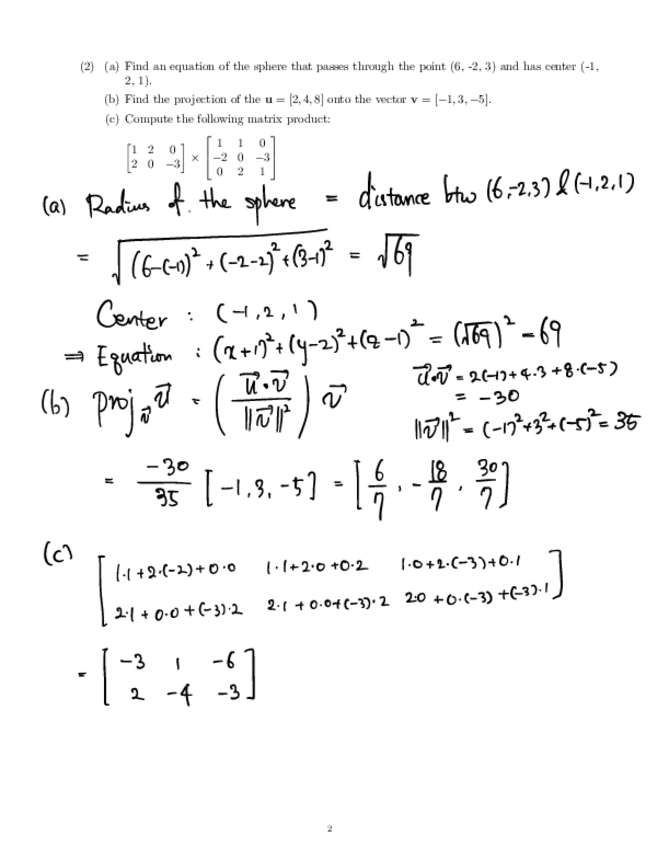 (2) (a) Find an equation of the sphere that passes through the point (6, -2, 3) and has center (-1,
2, 1).
(b) Find the projection of the u = [2, 4, 8] onto the vector v = [−1, 3, −5].
(c) Compute the following matrix product:
[1 2 0; 2 0 −3] × [1 1 0; −2 0 −3; 0 2 1]
(a) Radius of. the sphere = distance btw (6,-2,3) & (-1,2,1)
= √((6-(-1))² + (-2-2)² + (3-1)²) = √69
Center : (-1,2,1)
⇒ Equation : (x+1)² + (y-2)² + (z-1)² = (√69)² = 69
(b) proj_v⃗ u⃗ = (u⃗·v⃗ / ||v⃗||²) v⃗
u⃗·v⃗ = 2(-1)+4·3+8·(-5)
= -30
||v⃗||² = (-1)²+3²+(-5)² = 35
= -30/35 [-1, 3, -5] = [6/7, -18/7, 30/7]
(c) [1·1+2·(-2)+0·0 1·1+2·0+0·2 1·0+2·(-3)+0·1
2·1+0·0+(-3)·2 2·1+0·0+(-3)·2 2·0+0·(-3)+(-3)·1]
= [-3 1 -6
2 -4 -3]
2